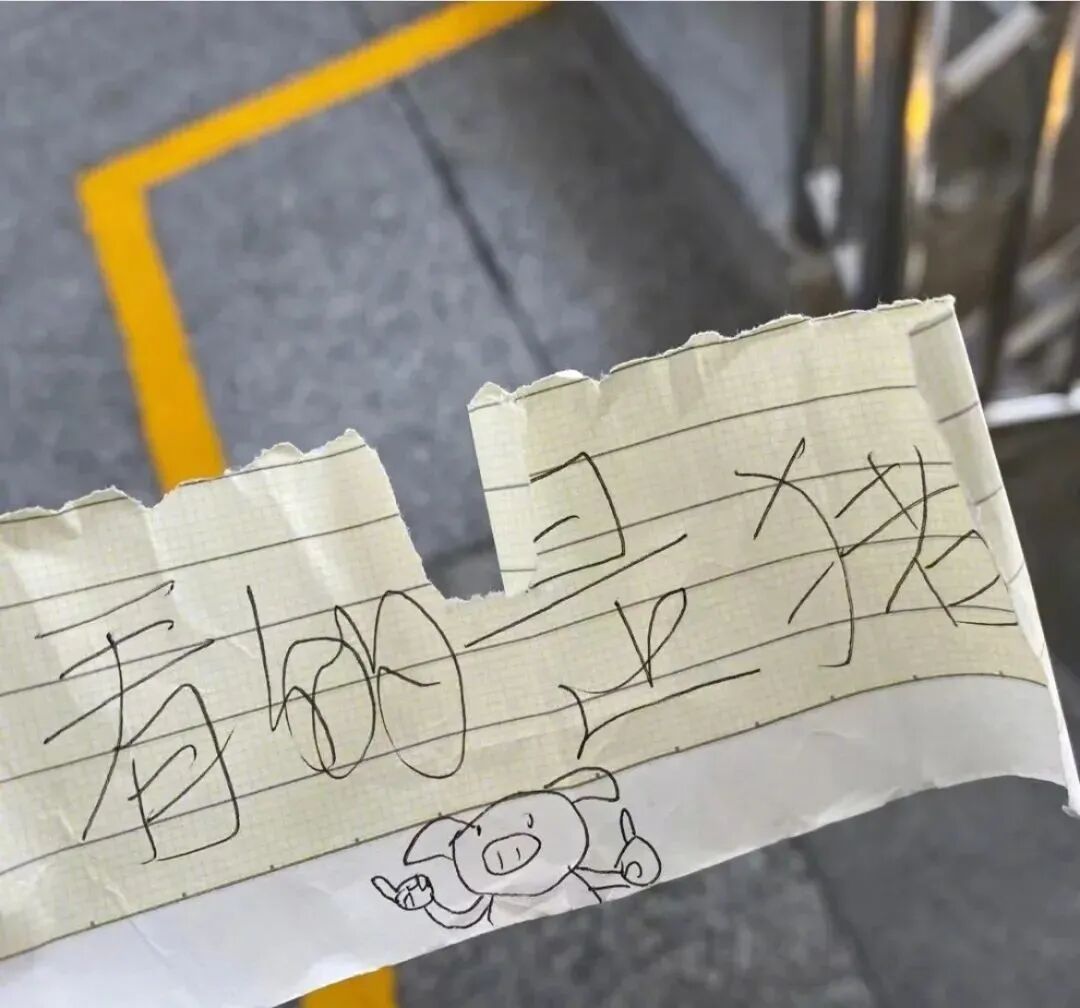 看的是猪